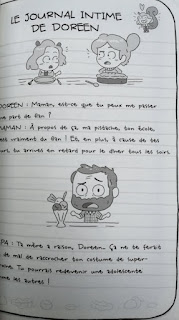 LE JOURNAL INTIME
DE DOREEN
DOREEN : Maman, est-ce que tu peux me passer
une part de flan ?
MAMAN : À propos de ça, ma pistache, ton école,
est vraiment du flan ! Et, en plus, à cause de tes
tu arrives en retard pour le dîner tous les soirs.
PA : Ta mère a raison, Doreen. Ça ne te ferait
de mal de raccrocher ton costume de super-
Tu pourrais redevenir une adolescente
les autres !